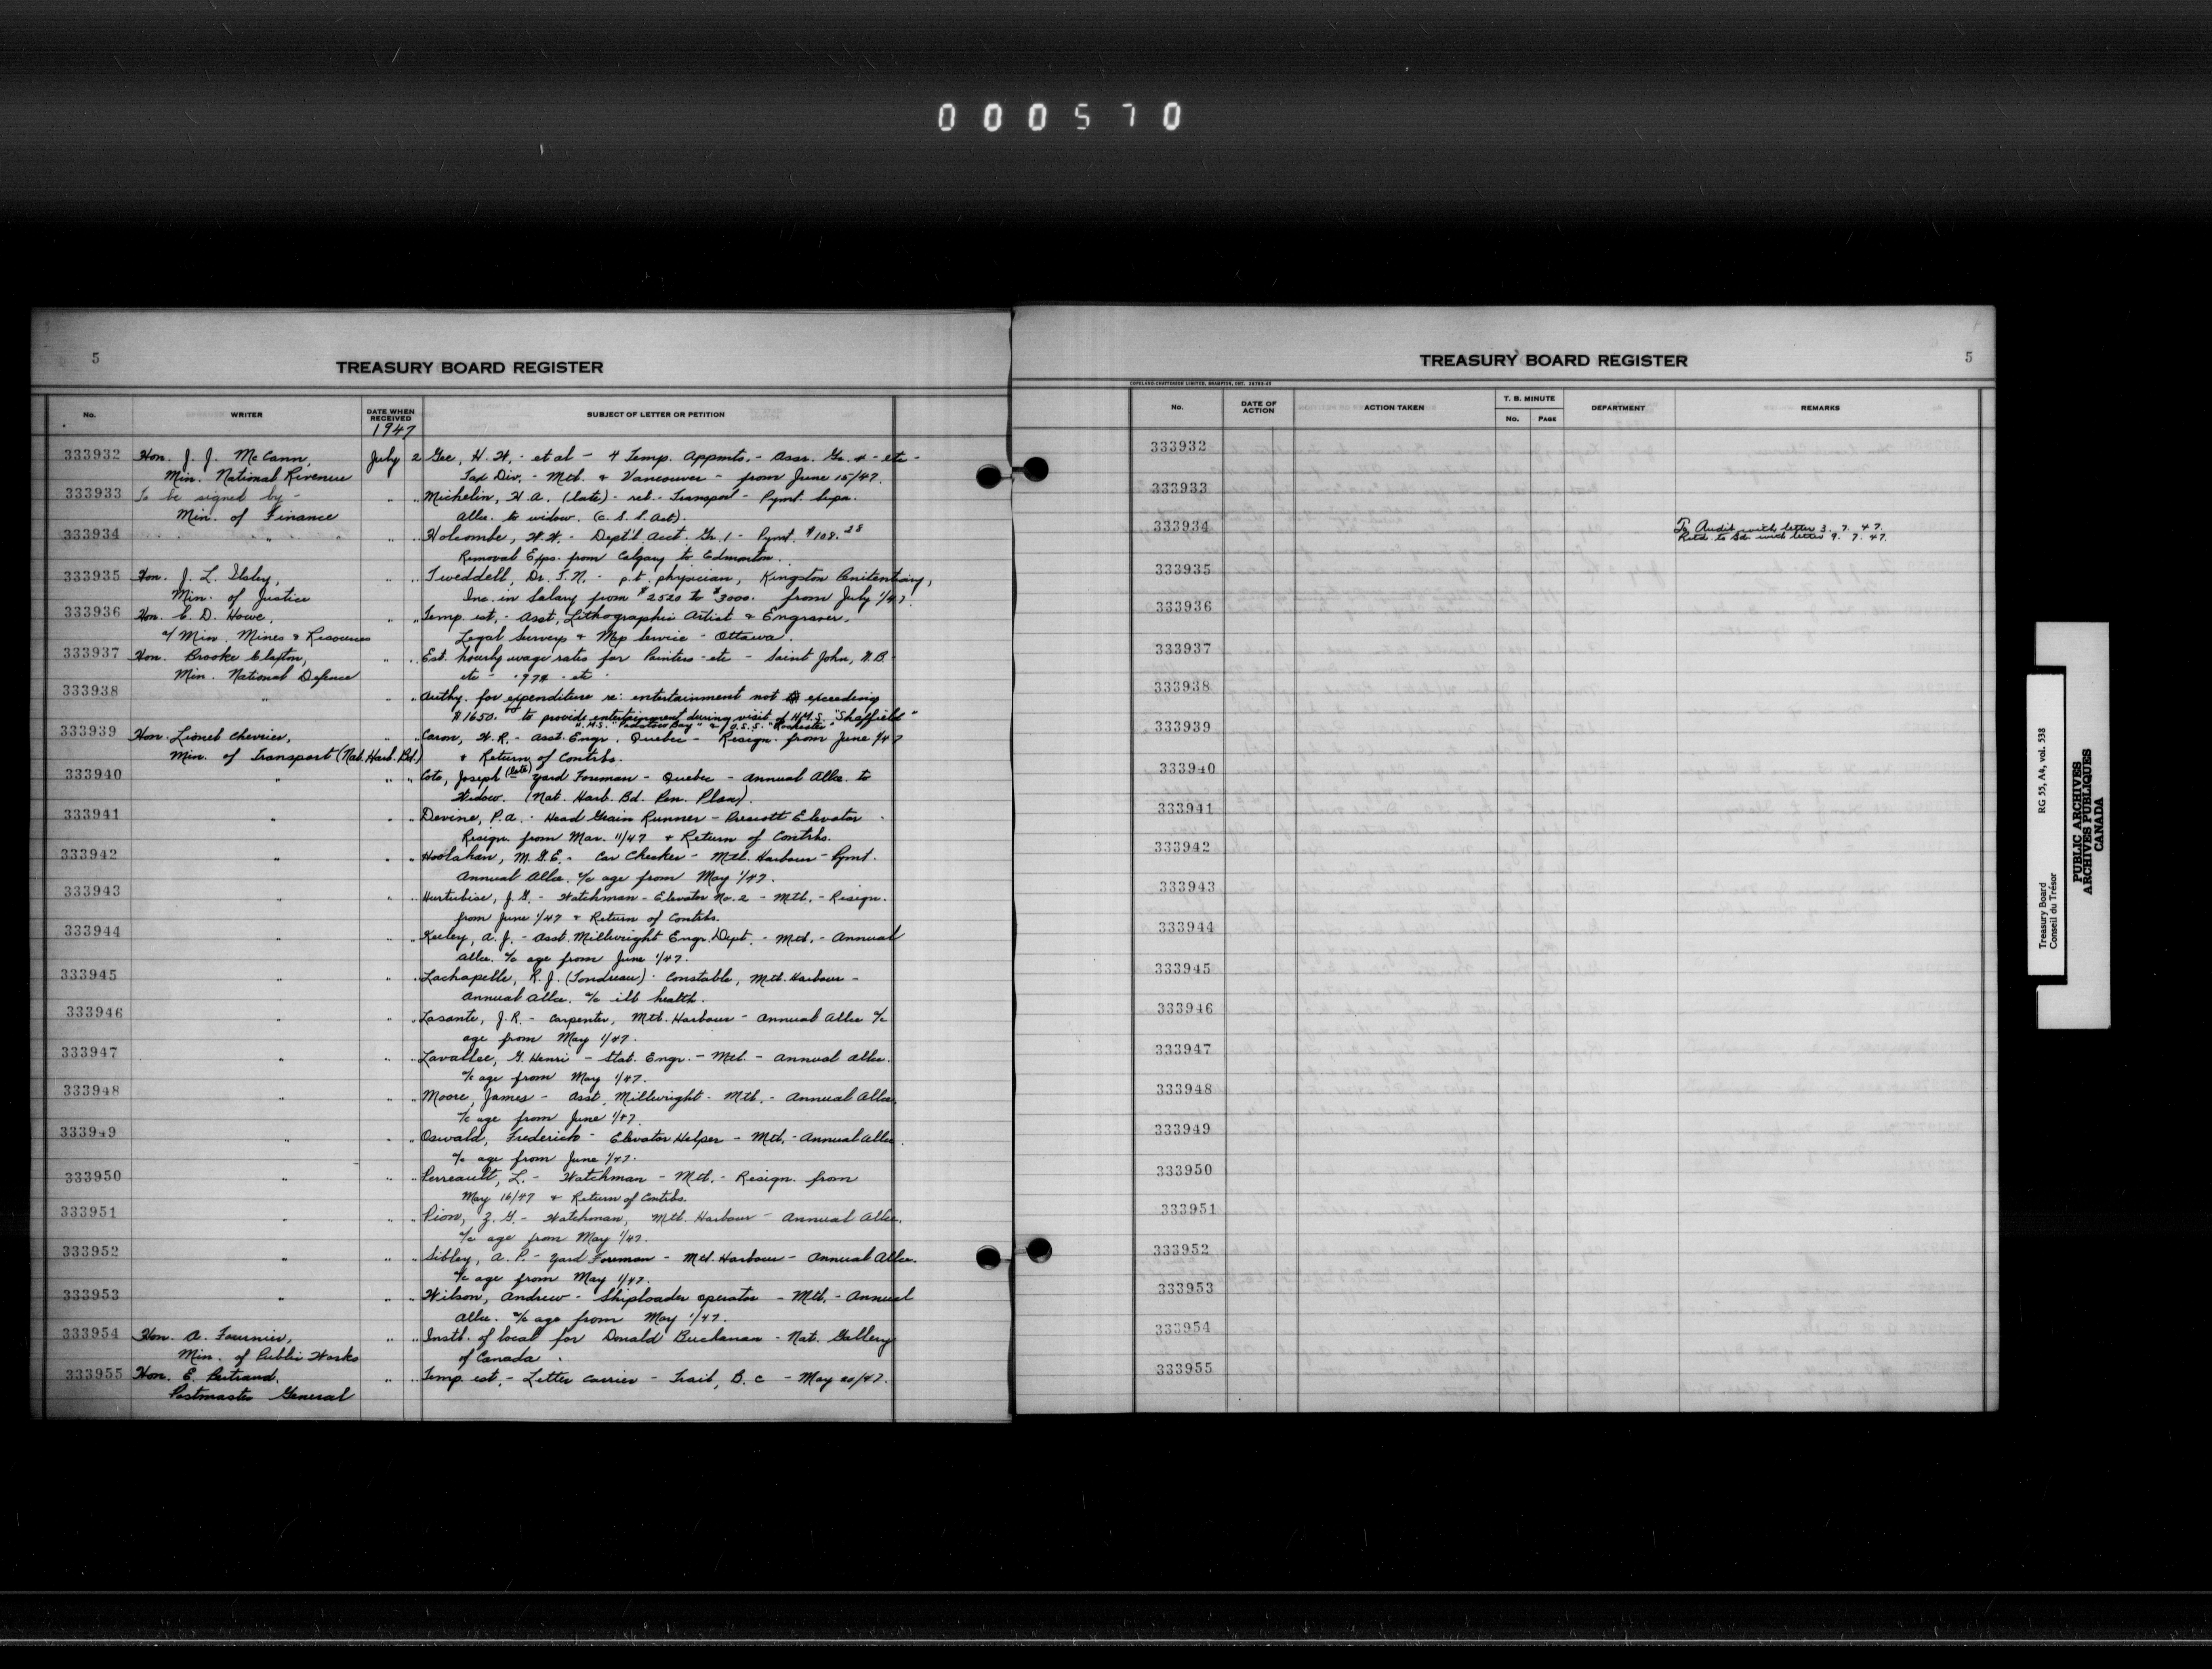 000570
5
TREASURY BOARD REGISTER
No. WRITER DATE WHEN RECEIVED SUBJECT OF LETTER OR PETITION
1947
333932 Hon. J. J. McCann, July 2 Gee, H. W. - et al - 4 Temp. Appmts. - Assr. Gr. 4 - etc -
Min. National Revenue Tax Div. - Mtl. & Vancouver - from June 15/47.
333933 To be signed by - " " Michelin, H. A. (late) - ret. - Transport - Pymt. Supa.
Min. of Finance Allce. to widow. (C. S. S. Act).
333934 " " " Holcombe, W. W. - Dept'l Acct. Gr. 1 - Pymt. $108.28
Removal Exps. from Calgary to Edmonton.
333935 Hon. J. L. Ilsley, " " Tweddell, Dr. T. N. - p.t. physician, Kingston Penitentiary,
Min. of Justice Inc. in Salary from $2520 to $3000. from July 1/47.
333936 Hon. C. D. Howe, " Temp. est. - Asst. Lithographic Artist & Engraver,
a/ Min. Mines & Resources Legal Surveys & Map Service - Ottawa.
333937 Hon. Brooke Claxton, " " Est. hourly wage rates for Painters - etc - Saint John, N.B.
Min. National Defence etc - .97¢ - etc
333938 " " " Authy. for expenditure re: entertainment not exceeding
$1650.00 to provide entertainment during visit of H.M.S. "Sheffield"
H.M.S. "Padstow Bay" & U.S.S. "Rochester"
333939 Hon. Lionel Chevrier, " " Caron, W. R. - Asst. Engr. Quebec - Resign. from June 1/47
Min. of Transport (Nat. Harb. Bd.) & Return of Contrbs.
333940 " " " Cote, Joseph (late) Yard Foreman - Quebec - Annual Allce. to
Widow. (Nat. Harb. Bd. Pen. Plan).
333941 " " " Devine, P. A. - Head Grain Runner - Prescott Elevator -
Resign. from Mar. 11/47 & Return of Contrbs.
333942 " " " Hoolahan, M. G. E. - Car Checker - Mtl. Harbour - Pymt.
Annual Allce. a/c age from May 1/47.
333943 " " " Hurtubise, J. G. - Watchman - Elevator No. 2 - Mtl. - Resign.
from June 1/47 & Return of Contrbs.
333944 " " " Keeley, A. J. - Asst. Millwright Engr. Dept. - Mtl. - Annual
Allce. a/c age from June 1/47.
333945 " " " Lachapelle, R. J. (Tondreau) - Constable, Mtl. Harbour -
Annual Allce. a/c ill health.
333946 " " " Lasante, J. R. - Carpenter, Mtl. Harbour - Annual Allce a/c
age from May 1/47.
333947 " " " Lavallee, G. Henri - Stat. Engr. - Mtl. - Annual Allce.
a/c age from May 1/47.
333948 " " " Moore, James - Asst. Millwright - Mtl. - Annual Allce.
a/c age from June 1/47.
333949 " " " Oswald, Frederick - Elevator Helper - Mtl. - Annual Allce.
a/c age from June 1/47.
333950 " " " Perreault, L. - Watchman - Mtl. - Resign. from
May 16/47 & Return of Contrbs.
333951 " " " Pion, Z. G. - Watchman, Mtl. Harbour - Annual Allce.
a/c age from May 1/47.
333952 " " " Sibley, A. P. - Yard Foreman - Mtl. Harbour - Annual Allce.
a/c age from May 1/47.
333953 " " " Wilson, Andrew - Shiploader operator - Mtl. - Annual
Allce. a/c age from May 1/47.
333954 Hon. A. Fournier, " " Instl. of local for Donald Buchanan - Nat. Gallery
Min. of Public Works of Canada.
333955 Hon. E. Bertrand, " " Temp. est. - Letter Carrier - Trail, B.C - May 20/47.
Postmaster General
TREASURY BOARD REGISTER
5
COPELAND-CHATTERSON LIMITED, BRAMPTON, ONT.
No. DATE OF ACTION ACTION TAKEN T. B. MINUTE No. PAGE DEPARTMENT REMARKS
333932
333933
333934 To Audit with letter 3. 7. 47.
Retd. to Bd. with letter 9. 7. 47.
333935
333936
333937
333938
333939
333940
333941
333942
333943
333944
333945
333946
333947
333948
333949
333950
333951
333952
333953
333954
333955
Treasury Board RG 55, A4, vol. 538
Conseil du Trésor
PUBLIC ARCHIVES
ARCHIVES PUBLIQUES
CANADA